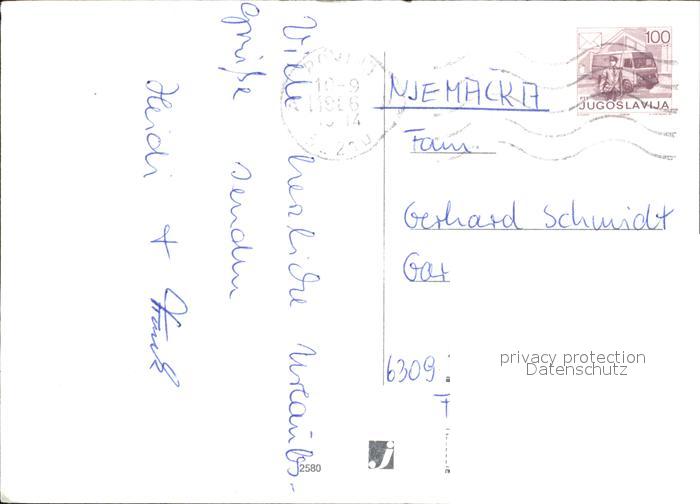 Viele herzliche Urlaubs-
grüße senden
Heidi +
100
JUGOSLAVIJA
1986
NJEMAČKA
Fam.
Gerhard Schmidt
Gar
6309
privacy protection
Datenschutz
2580